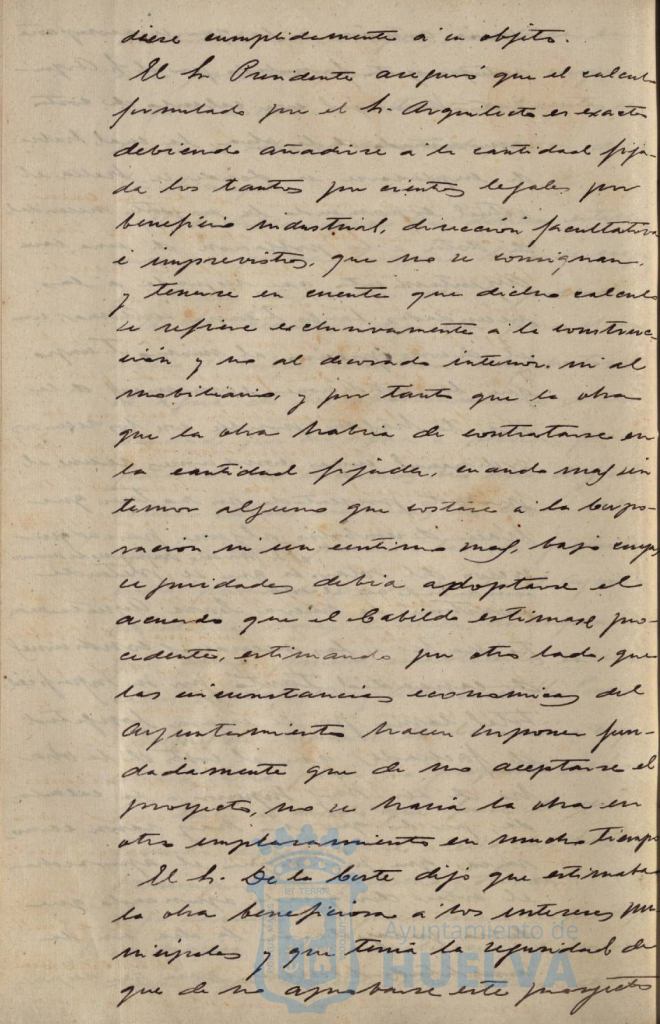 diese cumplidamente a su objeto.
El Sr. Presidente aseguró que el calculo
formulado por el Sr. Arquitecto es exacto
debiendo añadirse a la cantidad fija-
da los tantos por cientos legales por
beneficio industrial, dirección facultativa
é imprevistos, que no se consignan,
y tenerse en cuenta que dicho calculo
se refiere exclusivamente a la construc-
ción y no al decorado interior, ni al
mobiliario, y por tanto que la obra
que la obra habria de contratarse en
la cantidad fijada, cuando mas, sin
temor alguno que costase a la Corpo-
ración ni un centimo mas, bajo cuyas
seguridades debia adoptarse el
acuerdo que el Cabildo estimase pro-
cedente, estimando por otro lado, que
las circunstancias economicas del
Ayuntamiento hacen suponer fun-
dadamente que de no aceptarse el
proyecto, no se haria la obra en
otro emplazamiento en mucho tiempo
El Sr. De la Corte dijo que estimaba
la obra beneficiosa a los intereses mu-
nicipales y que tenia la seguridad de
que de no aprobarse este proyecto
Ayuntamiento de
HUELVA